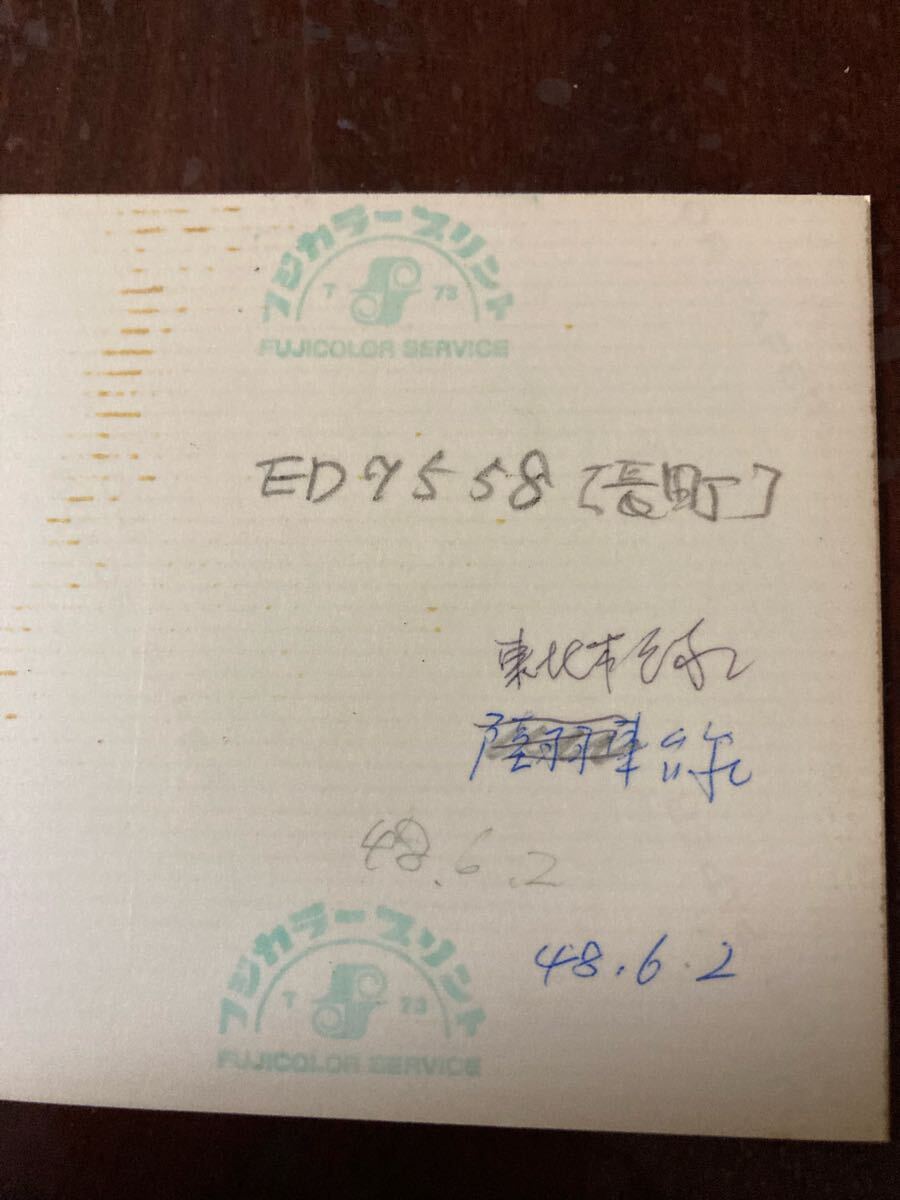 フジカラープリント
T 73
FUJICOLOR SERVICE
ED75 58 [長町]
東北本線
48.6.2
48.6.2
フジカラープリント
T 73
FUJICOLOR SERVICE